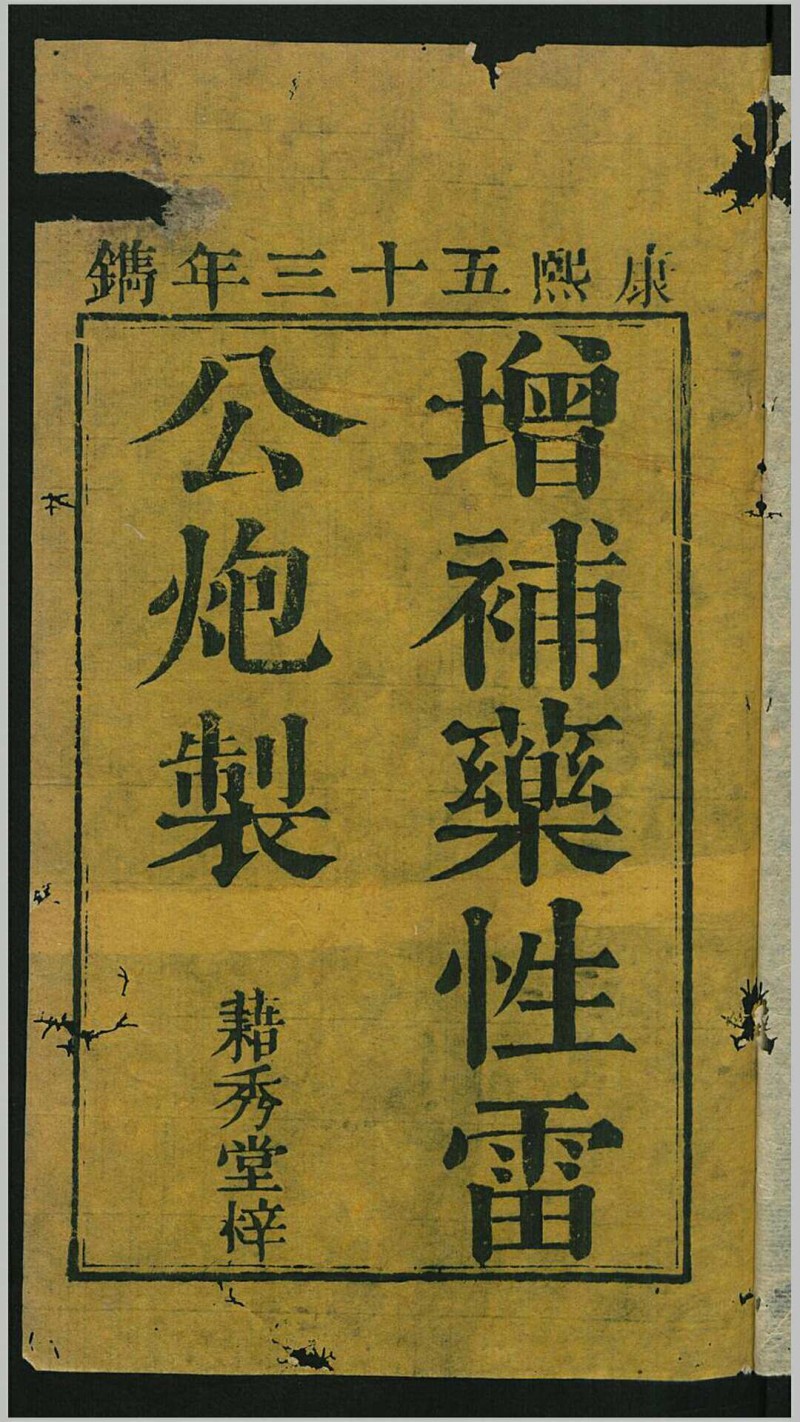 康熙五十三年鐫
增補藥性雷
公炮製
藉秀堂梓